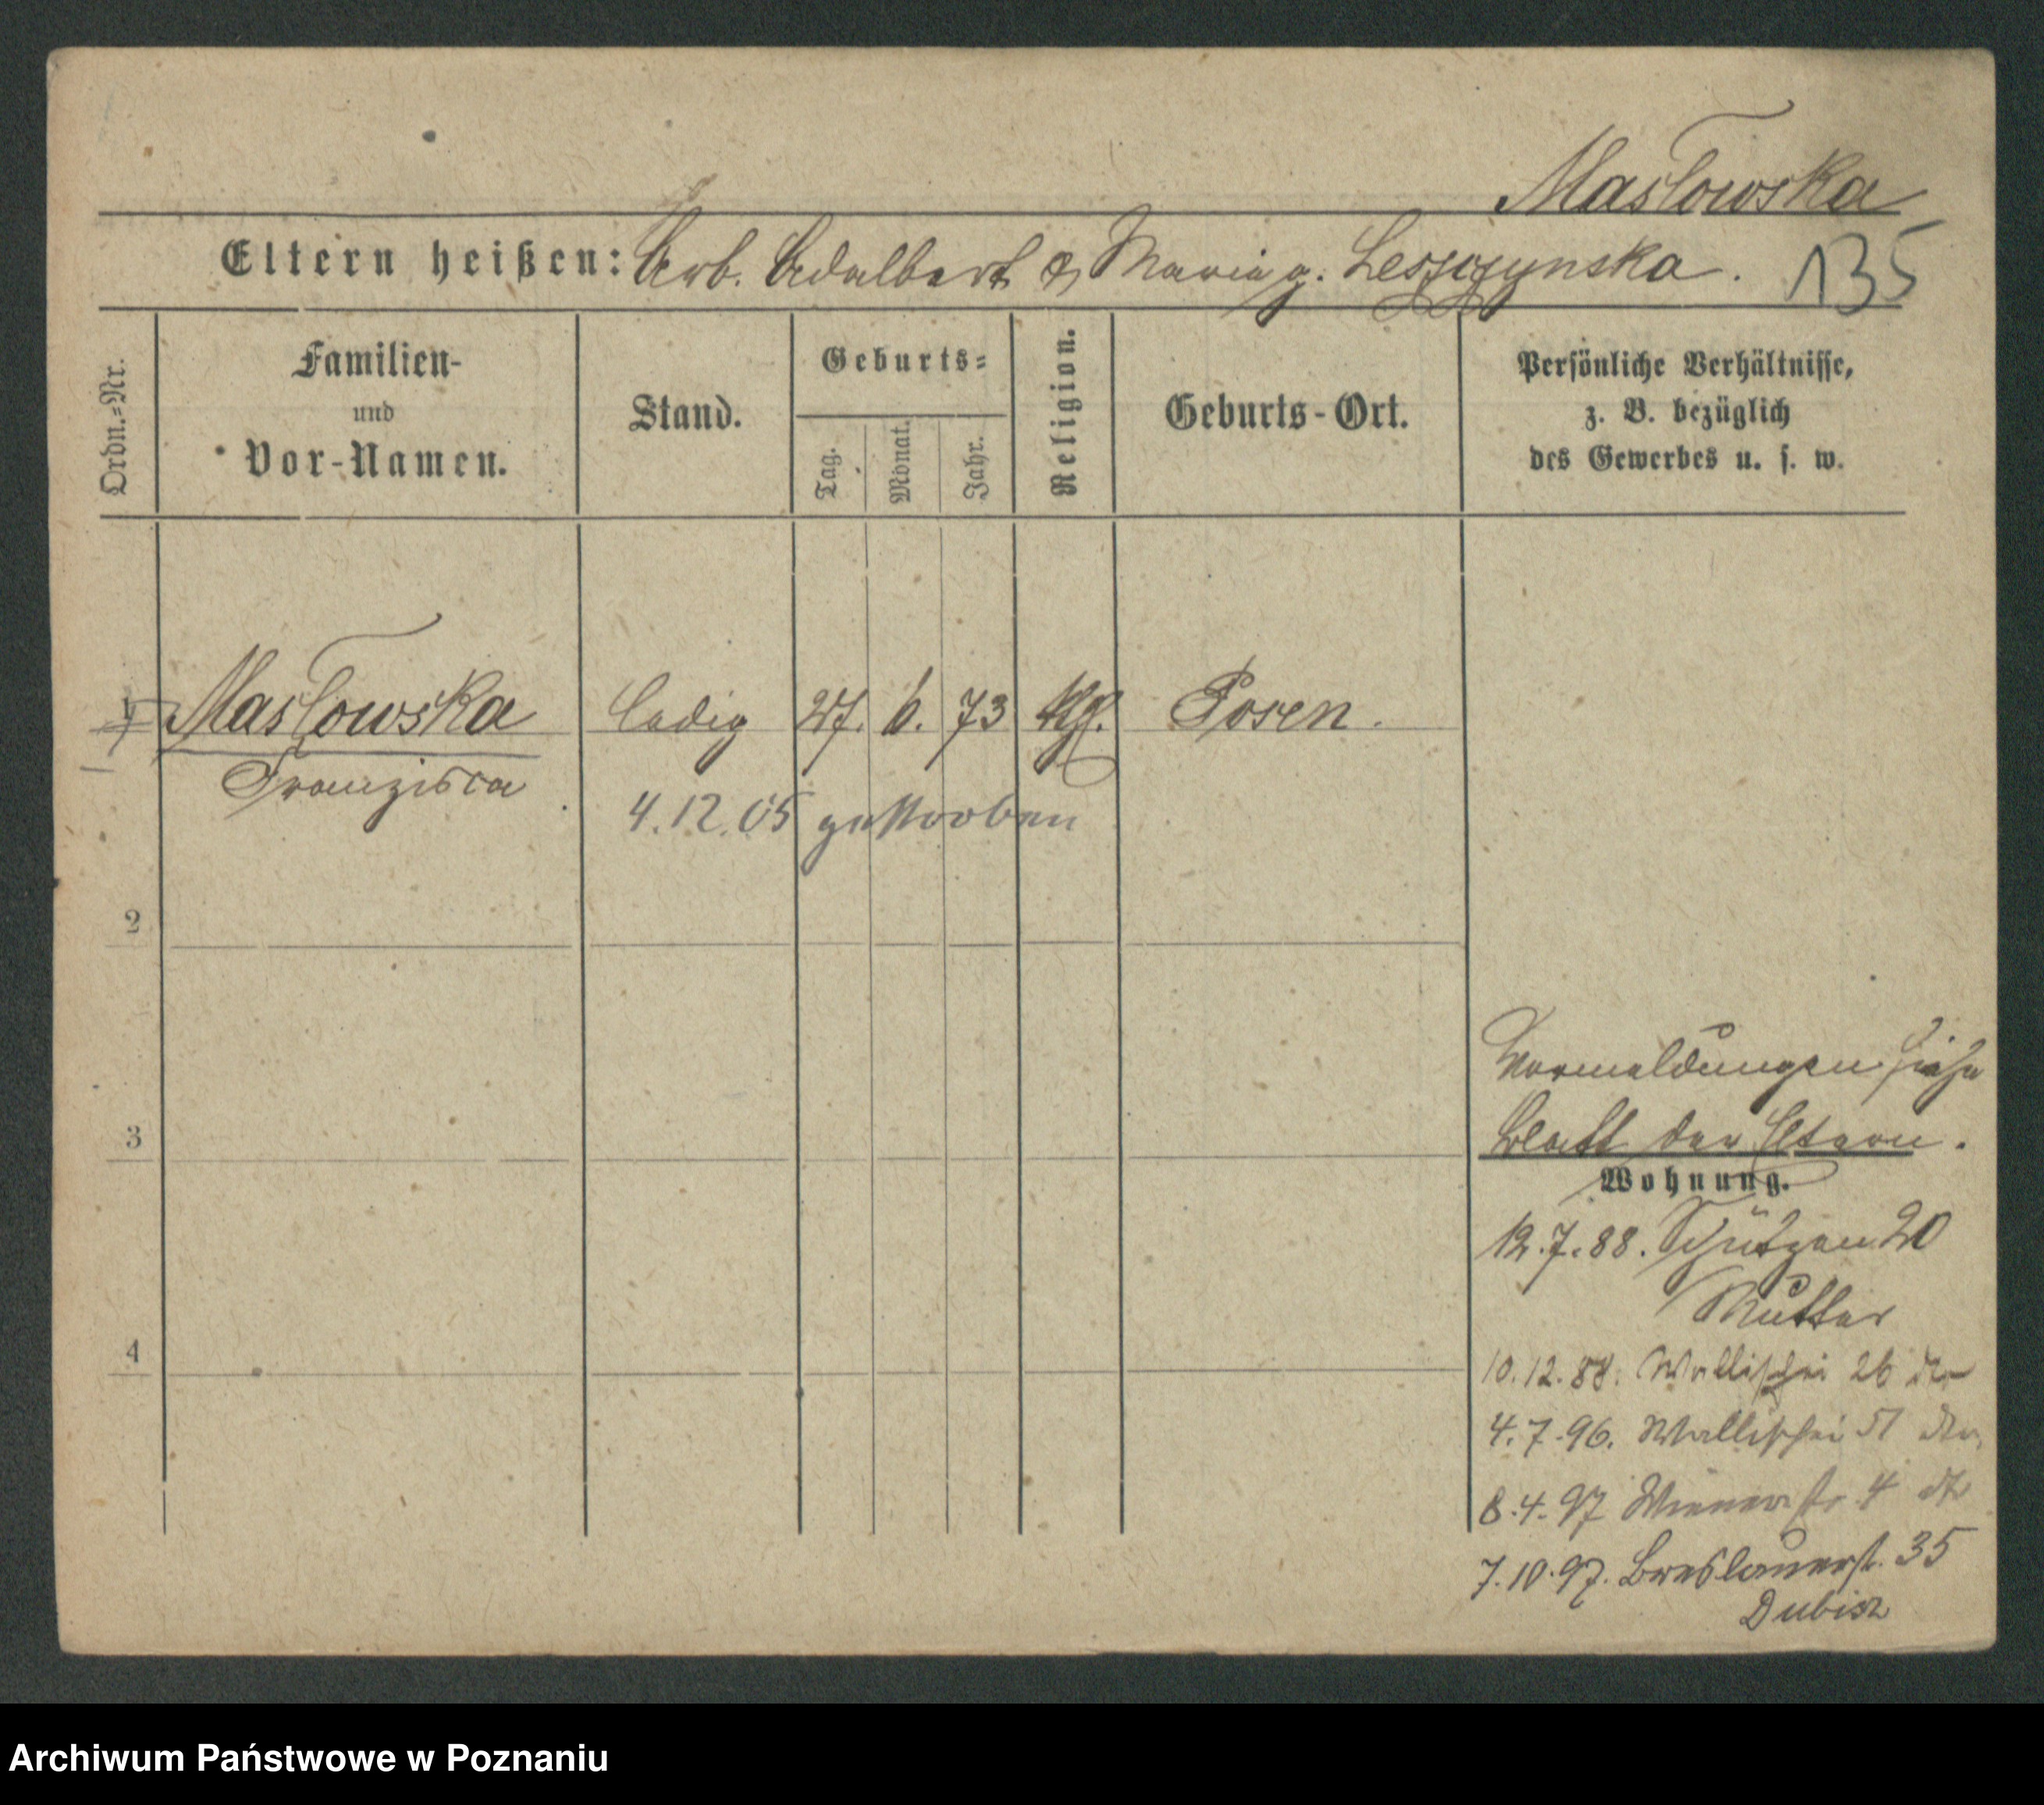 Masłowska
Eltern heißen: Arb. Adalbert & Maria g. Leszczynska. 135
Ordn.-Nr.
Familien-
und
Vor-Namen.
Stand.
Geburts-
Tag. Monat. Jahr.
Religion.
Geburts-Ort.
Persönliche Verhältnisse,
z. B. bezüglich
des Gewerbes u. s. w.
1 Masłowska ledig 27. 6. 73 Posen.
Franzisca
4.12.05 gestorben
2
3
4
Vormeldungen siehe
Blatt der Eltern.
Wohnung.
12.7.88. Schützen 20
Mutter
10.12.88. Wallischei 26 dto
4.7.96. Wallischei 51 dto
8.4.97 Wienerstr. 4 dto
7.10.97. Breslauerst. 35
Dubisz
Archiwum Państwowe w Poznaniu